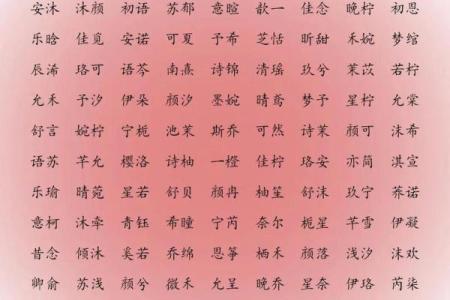 安沐 沐颜 初语 苏郁 意暄 歆一 佳念 晚柠 初恩
乐晗 佳觅 安诺 可夏 予希 芝恬 昕甜 禾婉 梦绾
辰浠 珞可 语芩 南熹 诗锦 清瑶 玖兮 茉苡 若柠
允禾 予汐 伊朵 颜汐 墨婉 晴鸢 梦予 星柠 允棠
舒言 婉柠 宁栀 池茉 斯乔 可然 诗茉 颜可 沫希
语苏 芊允 樱洛 诗柚 一橙 佳柠 珞安 亦简 淇宣
乐瑜 晴菀 星若 舒贝 颜冉 柚笙 舒沫 玖宁 荞诺
意柯 沐牵 青钰 希瞳 宁芮 奈尔 栀星 芊雪 伊凝
昔念 倾沐 奚若 乔绵 恩筝 栖禾 颜落 浅汐 沫欢
卿俞 苏浅 颜兮 微禾 允呈 晚乔 星奈 伊珞 芮柒